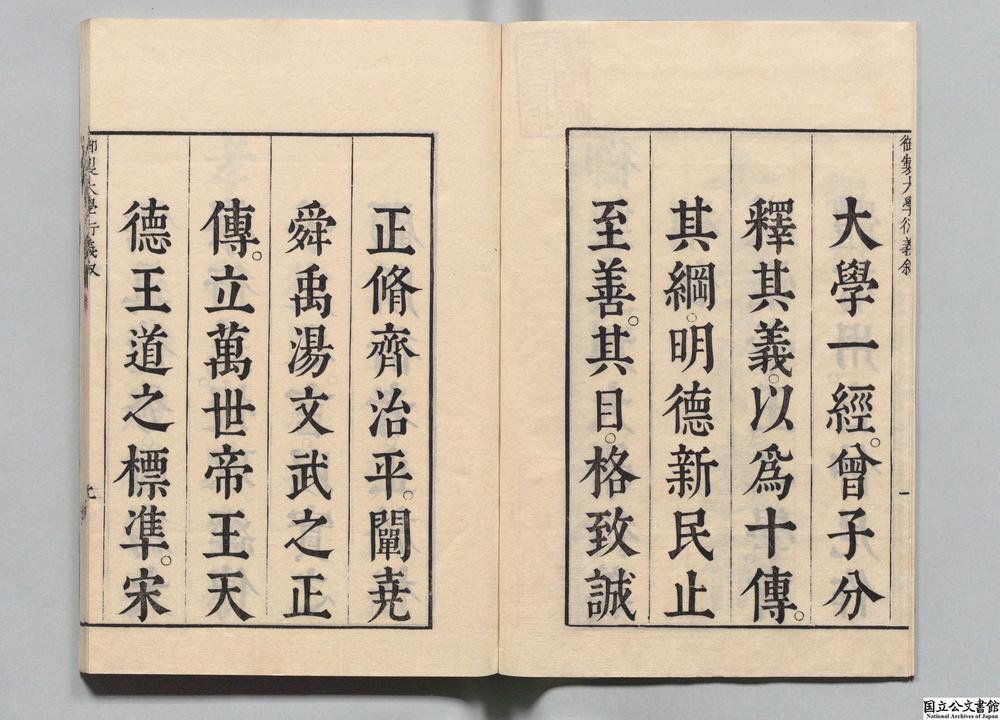 御製大學衍義敘
一
大學一經。曾子分
釋其義。以爲十傳。
其綱。明德新民止
至善。其目。格致誠
正脩齊治平。闡堯
舜禹湯文。武之正
傳。立萬世帝王天
德王道之標準。宋
御製大學衍義敘
国立公文書館
National Archives of Japan